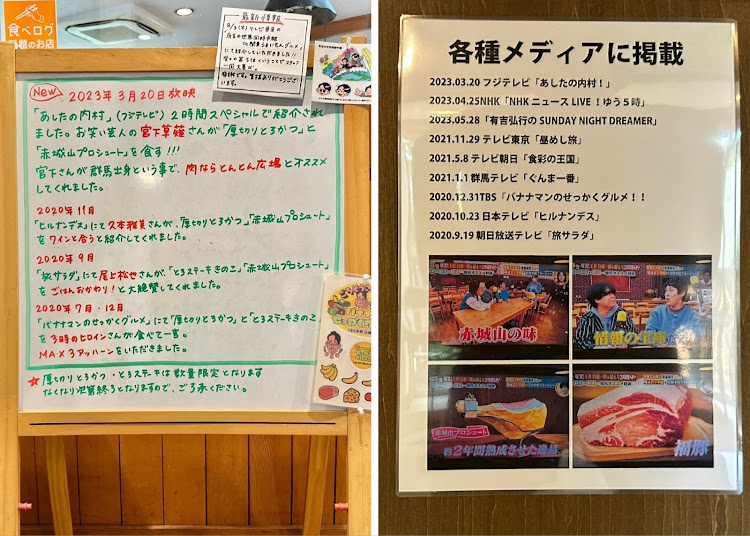 食べログ
最新情報
New
2023年3月20日放映
「あしたの内村」(フジテレビ) 2時間スペシャルで紹介され
ました。お笑い芸人の宮下草薙さんが「厚切りとろかつ」と
「赤城山プロシュート」を食す!!!
宮下さんが群馬出身という事で、肉ならとんとん広場とオススメ
してくれました。
2020年11月
「ヒルナンデス」にて久本雅美さんが、「厚切りとろかつ」「赤城山プロシュート」
をワインと合うと紹介してくれました。
2020年9月
「旅サラダ」にて尾上松也さんが、「とろステーキきのこ」「赤城山プロシュート」
をごはんおかわり!と大絶賛してくれました。
2020年7月・12月
「バナナマンのせっかくグルメ」にて「厚切りとろかつ」と「とろステーキきのこ」
を3時のヒロインさんが食べて一言。
MAX3アッハーンをいただきました。
★厚切りとろかつ・とろステーキは数量限定となります
なくなり次第終了となりますので、ご了承ください。
各種メディアに掲載
2023.03.20 フジテレビ「あしたの内村!」
2023.04.25NHK「NHK ニュース LIVE !ゆう5時」
2023.05.28「有吉弘行の SUNDAY NIGHT DREAMER」
2021.11.29 テレビ東京「昼めし旅」
2021.5.8 テレビ朝日「食彩の王国」
2021.1.1 群馬テレビ「ぐんま一番」
2020.12.31TBS「バナナマンのせっかくグルメ!!」
2020.10.23 日本テレビ「ヒルナンデス」
2020.9.19 朝日放送テレビ「旅サラダ」
赤城山の味
情報の宝庫
赤城山プロシュート
約2年間熟成させた逸品
福豚